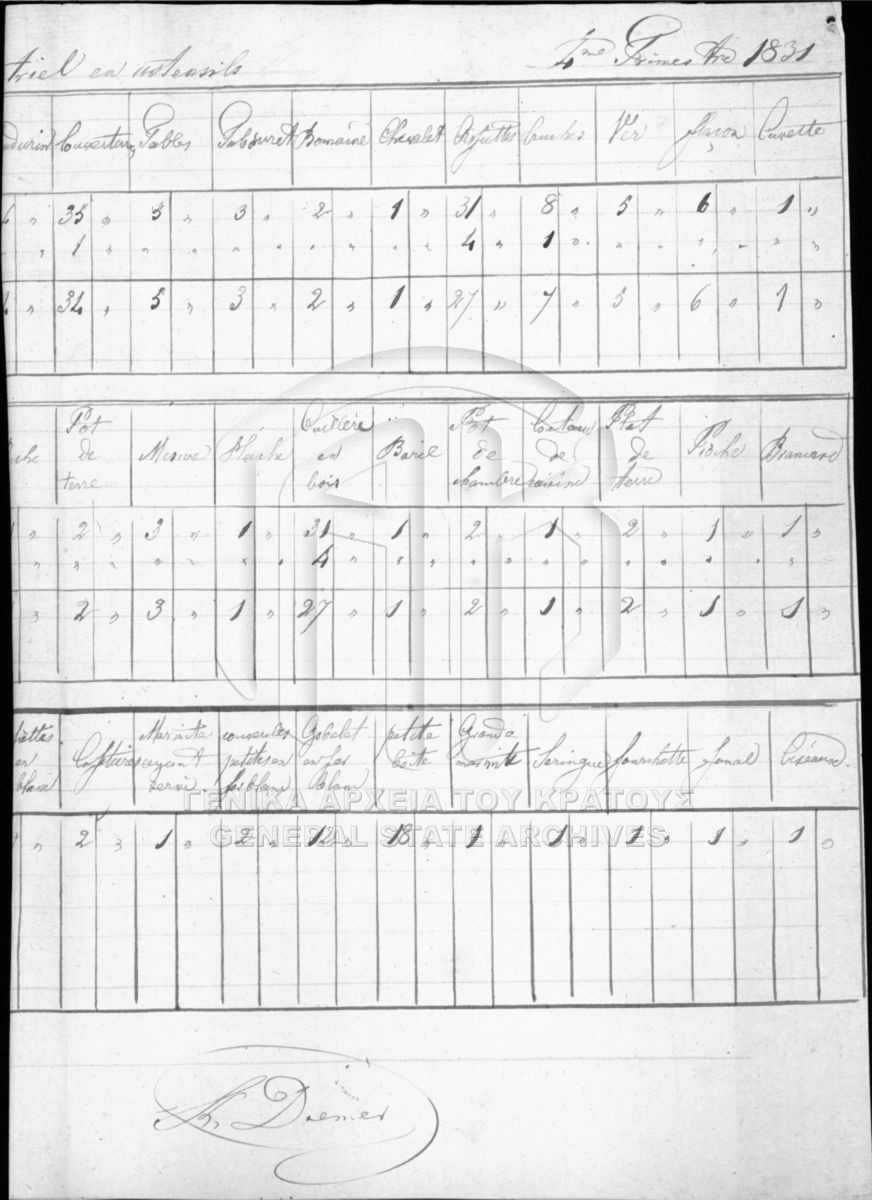 triel en ustensils 4me Trimestre 1831
Couverture Tables Tabouret Romaine Chevalet Assiettes Cruches Ver flacon Cuvette
" 35 " 5 " 3 " 2 " 1 " 31 " 8 " 5 " 6 " 1 "
" 1 " " " " " " " " " 4 " 1 " " " " " " "
" 34 " 5 " 3 " 2 " 1 " 27 " 7 " 5 " 6 " 1 "
Pot de terre Mesure Hache Cuillère en bois Baril Pot de chambre Couteau de cuisine Plat de terre Pioche Brancard
" 2 " 3 " 1 " 31 " 1 " 2 " 1 " 2 " 1 " 1 "
" " " " " " " 4 " " " " " " " " " " " " "
" 2 " 3 " 1 " 27 " 1 " 2 " 1 " 2 " 1 " 1 "
en blanc Cafetières Marmite ayant servi. petites en fer blanc Gobelet en fer blanc petite boîte Grande marmite Seringue fourchette fanal Ciseaux.
" 2 " 1 " 2 " 12 " 18 " 1 " 1 " 1 " 1 " 1 "
ΓΕΝΙΚΑ ΑΡΧΕΙΑ ΤΟΥ ΚΡΑΤΟΥΣ
GENERAL STATE ARCHIVES